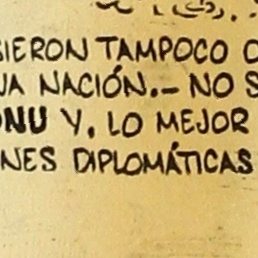 SIERON TAMPOCO
NACIÓN.- NO
ONU Y, LO MEJOR
NES DIPLOMÁTICAS